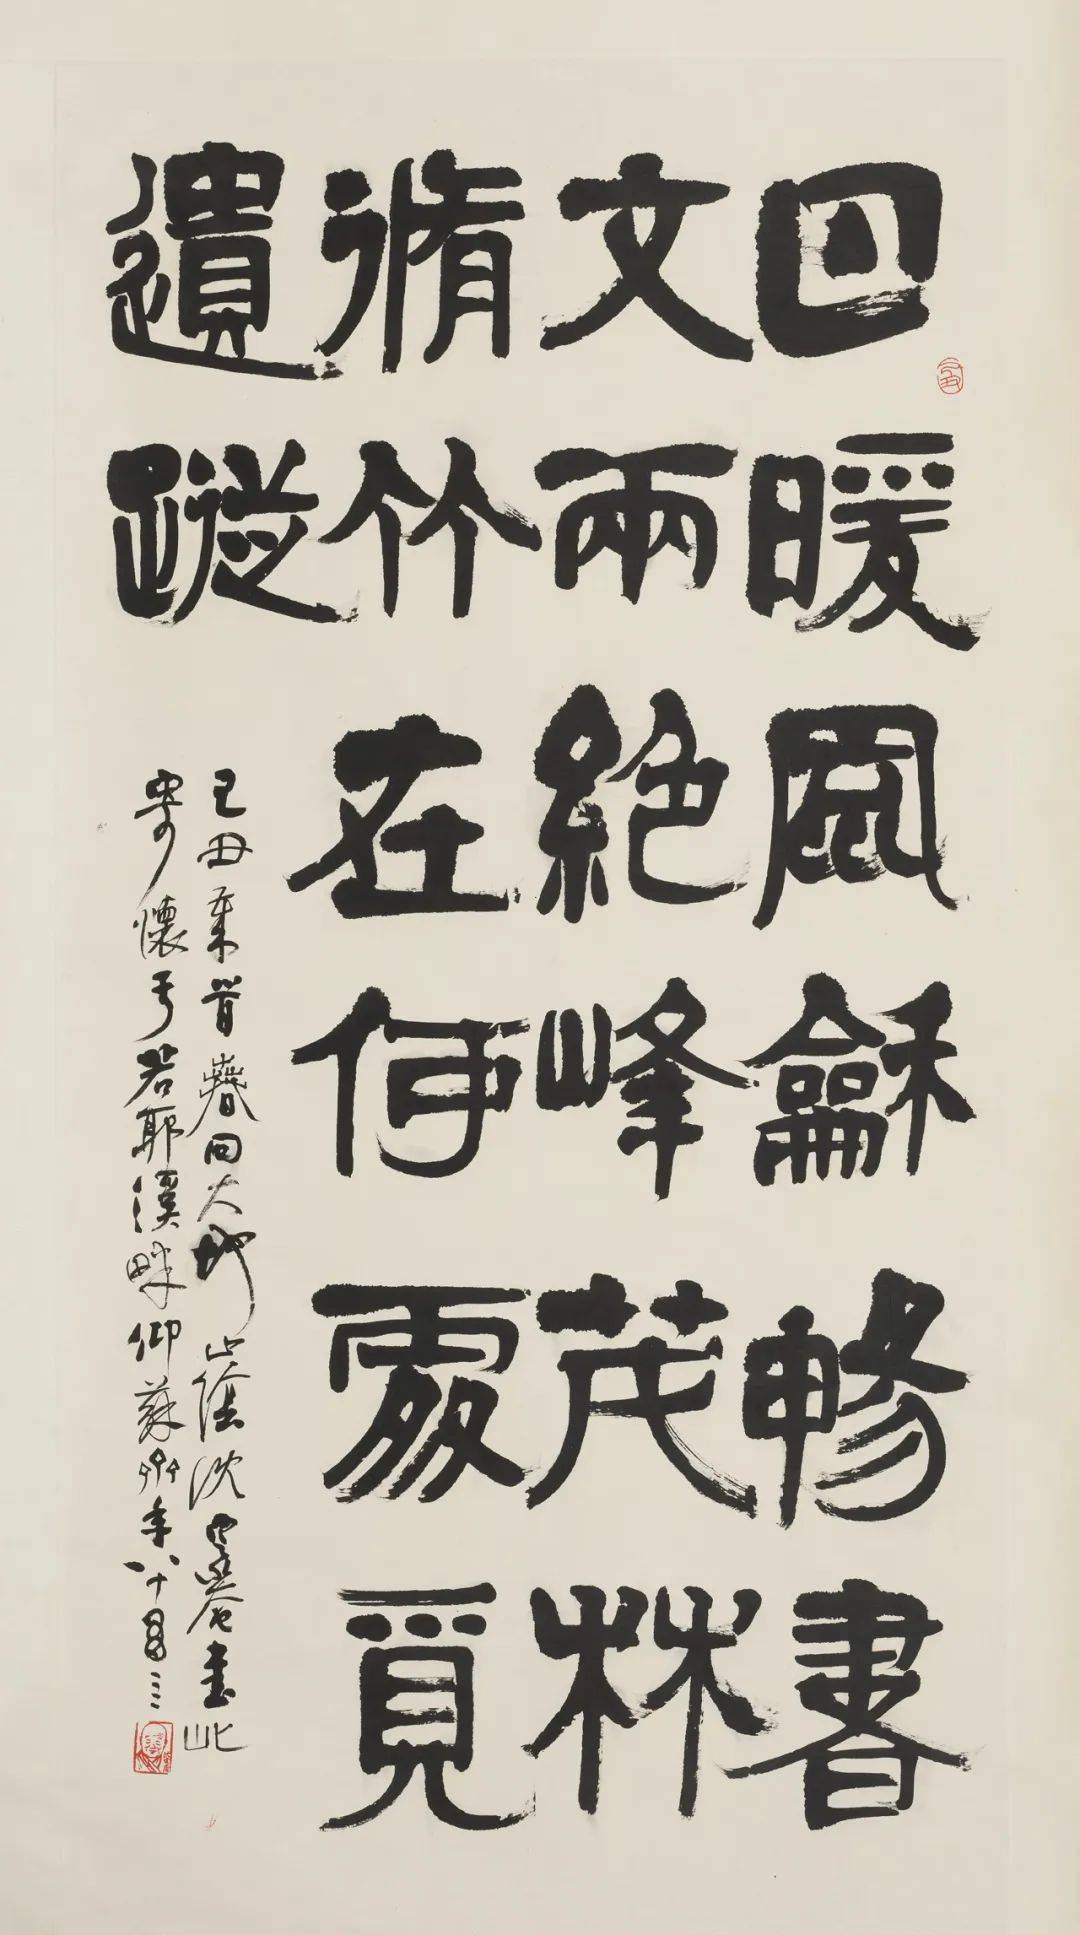 日暖風龢暢書
文兩絕峰茂林
脩竹在何處覓
遺蹤
己丑歲首春回大地山陰沈定菴書此
寄懷于若耶溪畔仰蘇齋年八十有三